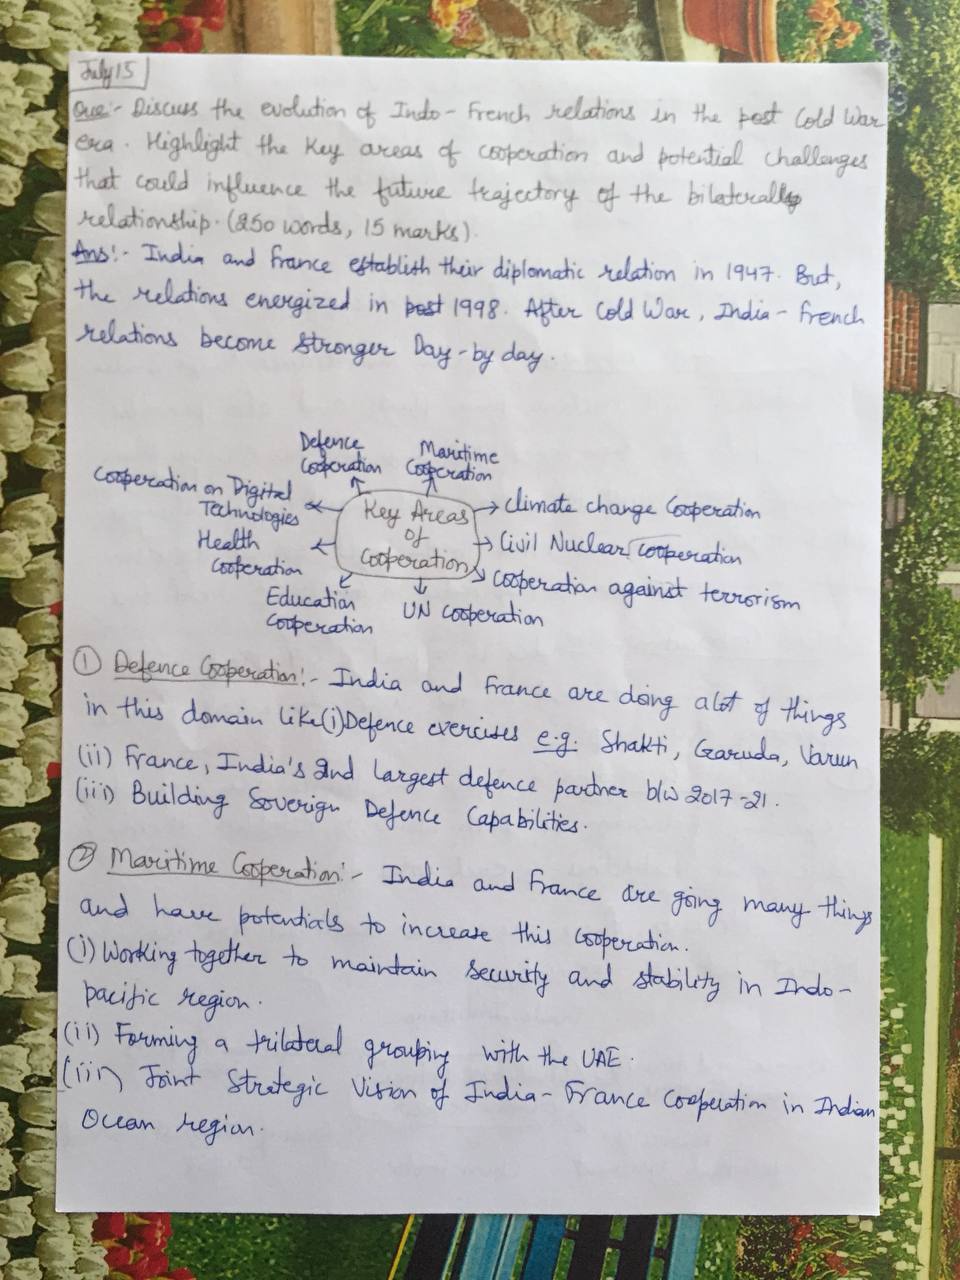 July 15
Que:- Discuss the evolution of Indo-French relations in the post Cold War
era. Highlight the key areas of cooperation and potential challenges
that could influence the future trajectory of the bilateral
relationship. (250 words, 15 marks).
Ans:- India and France establish their diplomatic relation in 1947. But,
the relations energized in post 1998. After Cold War, India-French
relations become stronger Day-by day.
Defence
Cooperation
Maritime
Cooperation
Cooperation on Digital
Technologies
Key Areas
of
Cooperation
Climate change Cooperation
Health
Cooperation
Civil Nuclear cooperation
Cooperation against terrorism
Education
Cooperation
UN Cooperation
① Defence Cooperation:- India and France are doing a lot of things
in this domain like (i) Defence exercises e.g: Shakti, Garuda, Varun
(ii) France, India's 2nd largest defence partner b/w 2017-21.
(iii) Building Soverign Defence Capabilities.
② Maritime Cooperation:- India and France are going many things
and have potentials to increase this cooperation.
(i) Working together to maintain security and stability in Indo-
pacific region.
(ii) Forming a trilateral grouping with the UAE.
(iii) Joint Strategic Vision of India-France Cooperation in Indian
Ocean region.